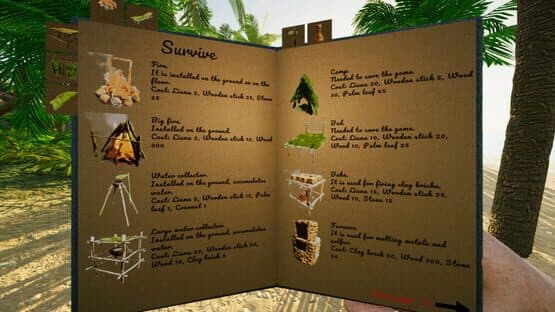 Survive
Fire.
It is installed on the ground or on the
floor.
Cost: Liana 2, Wooden stick 25, Stone
25
Big fire.
Installed on the ground.
Cost: Liana 2, Wooden stick 10, Wood
200
Water collector.
Installed on the ground, accumulates
water.
Cost: Liana 5, Wooden stick 10, Palm
leaf 1, Coconut 1
Large water collector.
Installed on the ground, accumulates
water.
Cost: Liana 20, Wooden stick 20,
Wood 10, Clay brick 2
Camp.
Needed to save the game.
Cost: Liana 20, Wooden stick 5, Wood
20, Palm leaf 45
Bed.
Needed to save the game.
Cost: Liana 10, Wooden stick 20,
Wood 10, Palm leaf 25
Bake.
It is used for firing clay bricks.
Cost: Liana 10, Wooden stick 25,
Wood 10, Stone 15
Furnace.
It is used for melting metals and
sulfur.
Cost: Clay brick 50, Wood 200, Stone